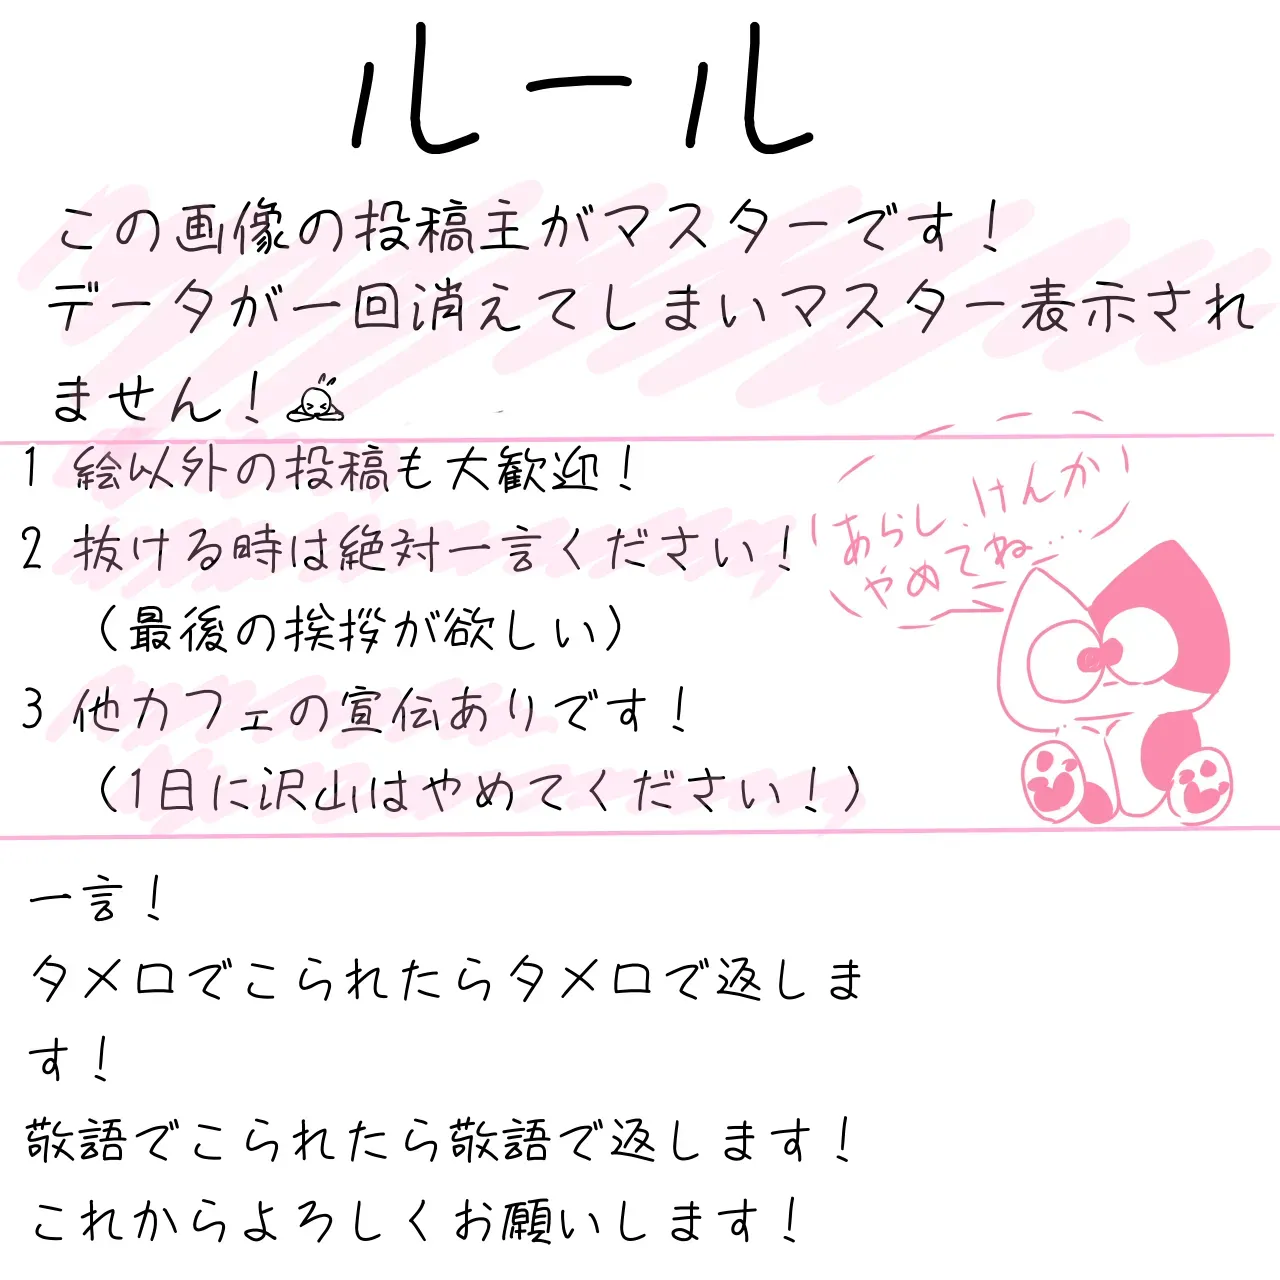 ルール
この画像の投稿主がマスターです！
データが一回消えてしまいマスター表示され
ません！
1 絵以外の投稿も大歓迎！
2 抜ける時は絶対一言ください！
（最後の挨拶が欲しい）
3 他カフェの宣伝ありです！
（1日に沢山はやめてください！）
あらし、けんか
やめてね…
一言！
タメ口でこられたらタメ口で返しま
す！
敬語でこられたら敬語で返します！
これからよろしくお願いします！